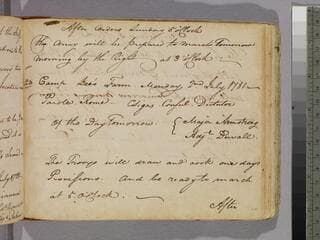 After Orders Sunday 5 oClock
The Army will be prepared to march Tomorrow
morning by the Right at 3 oClock
Camp Farm Monday 2nd July 1781
Parole Rome Consul Dictator
Of the Day Tomorrow { Major Armstrong
Adjt. Duvall
The Troops will draw and cook one days
Provisions. And be ready to march
at 5. OClock.
After